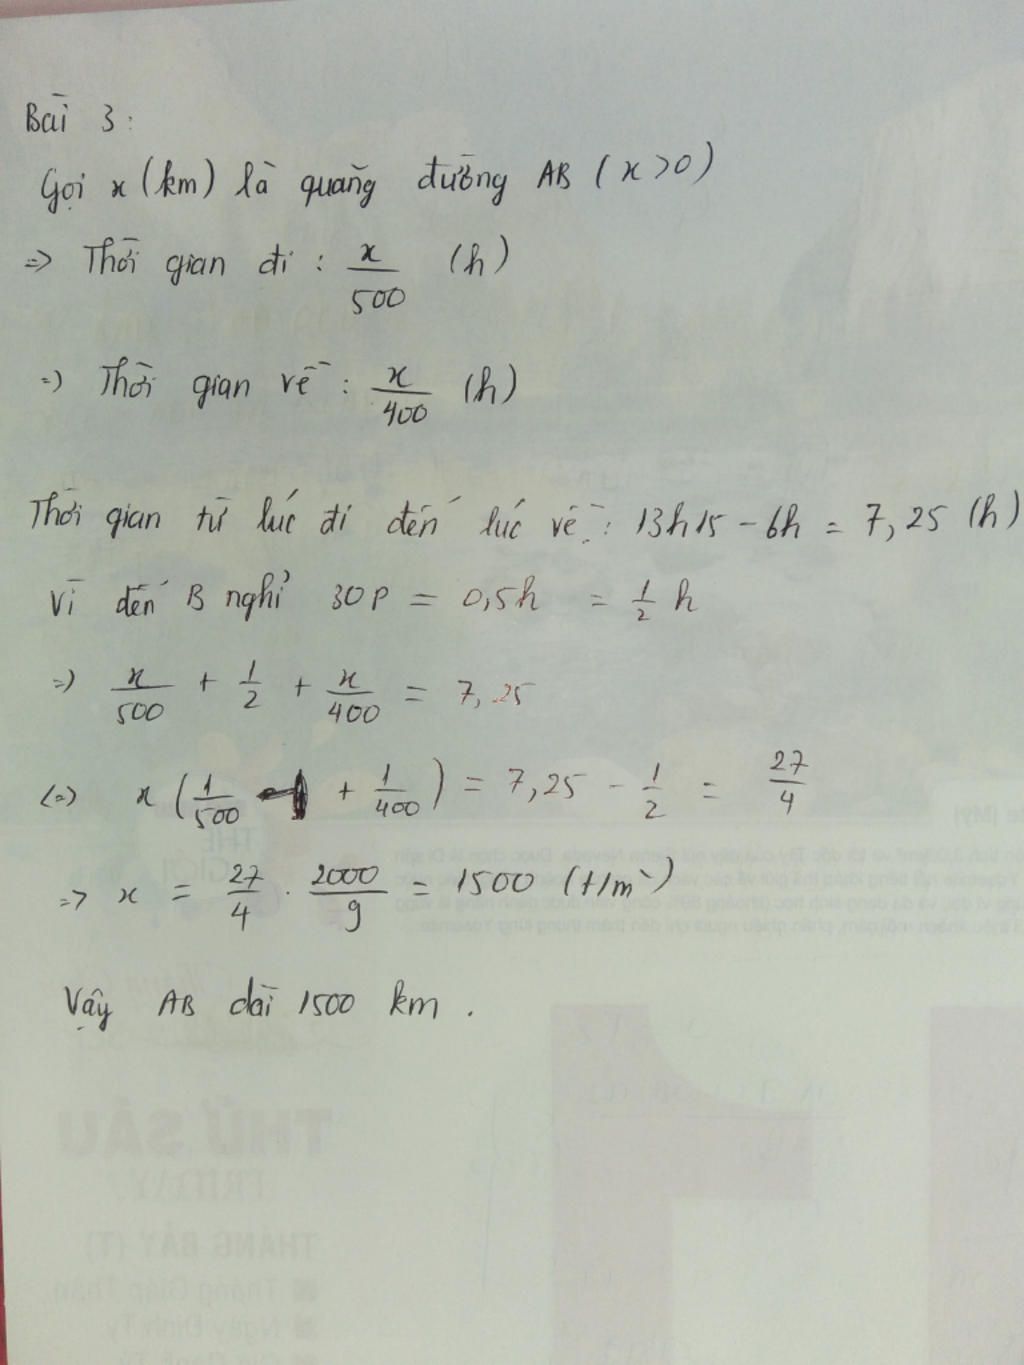 Bài 3:
Gọi x (km) là quãng đường AB (x > 0)
=> Thời gian đi : x/500 (h)
=> Thời gian về : x/400 (h)
Thời gian từ lúc đi đến lúc về : 13h15 - 6h = 7,25 (h)
Vì đến B nghỉ 30p = 0,5h = 1/2 h
=> x/500 + 1/2 + x/400 = 7,25
(=) x (1/500 + 1/400) = 7,25 - 1/2 = 27/4
=> x = 27/4 . 2000/9 = 1500 (t/m)
Vậy AB dài 1500 km .
THẾ
GIỚI
THỨ SÁU
FRIDAY
THÁNG BẢY (T)